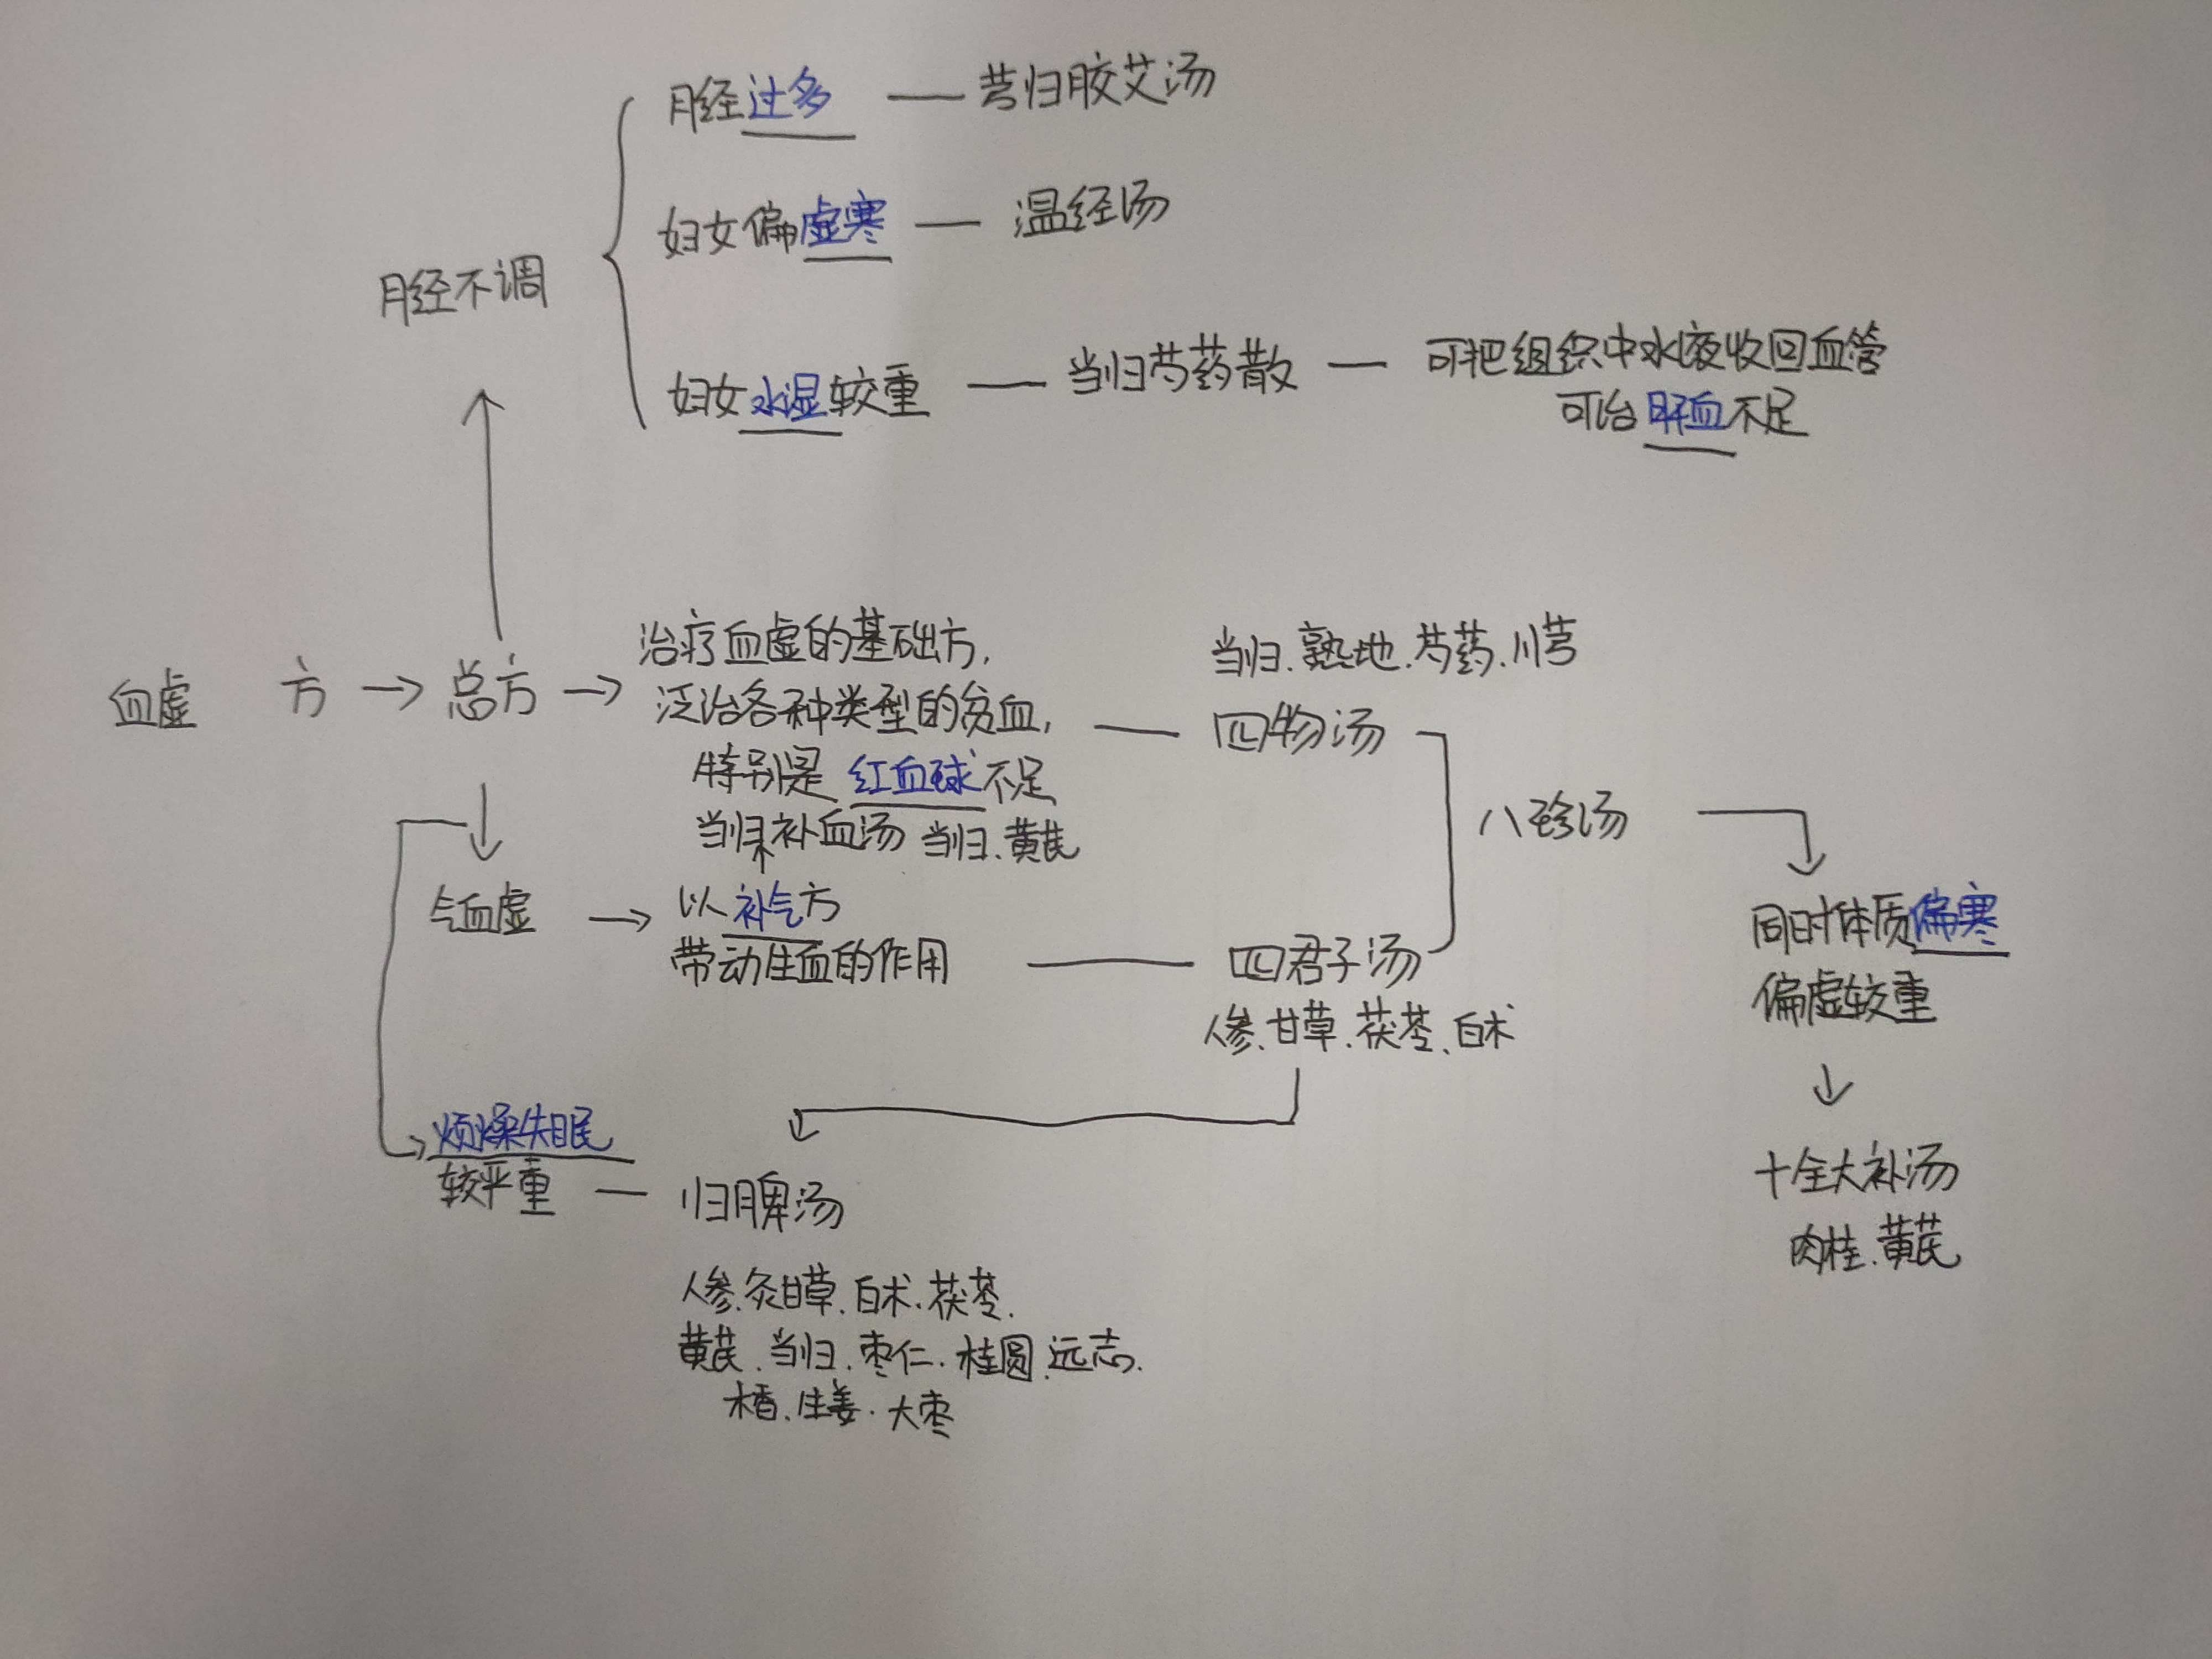 月经过多 — 芎归胶艾汤
妇女偏虚寒 — 温经汤
月经不调
妇女水湿较重 — 当归芍药散 — 可把组织中水液收回血管
可治肝血不足
血虚 方 → 总方 →
治疗血虚的基础方,
泛治各种类型的贫血,
特别是红血球不足
当归补血汤 当归、黄芪
当归、熟地、芍药、川芎
四物汤
八珍汤
气血虚 → 以补气方
带动生血的作用 — 四君子汤
人参、甘草、茯苓、白术
同时体质偏寒
偏虚较重
十全大补汤
肉桂、黄芪
烦燥失眠
较严重 — 归脾汤
人参、灸甘草、白术、茯苓、
黄芪、当归、枣仁、桂圆、远志、
木香、生姜、大枣